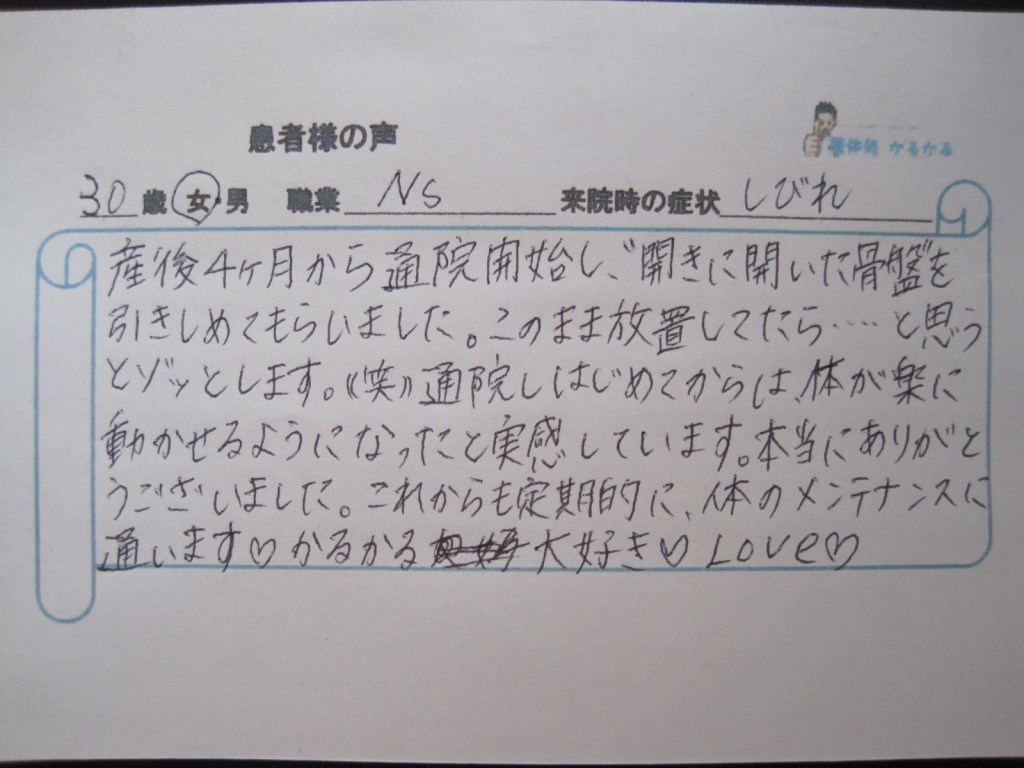 患者様の声
整体処 かるかる
30歳 女・男 職業 Ns 来院時の症状 しびれ
産後4ヶ月から通院開始し、"開きに開いた骨盤"を
引きしめてもらいました。このまま放置してたら‥‥と思う
とゾッとします。《笑》通院しはじめてからは、体が楽に
動かせるようになったと実感しています。本当にありがと
うございました。これからも定期的に、体のメンテナンスに
通います♡かるかる 大好き♡Love♡